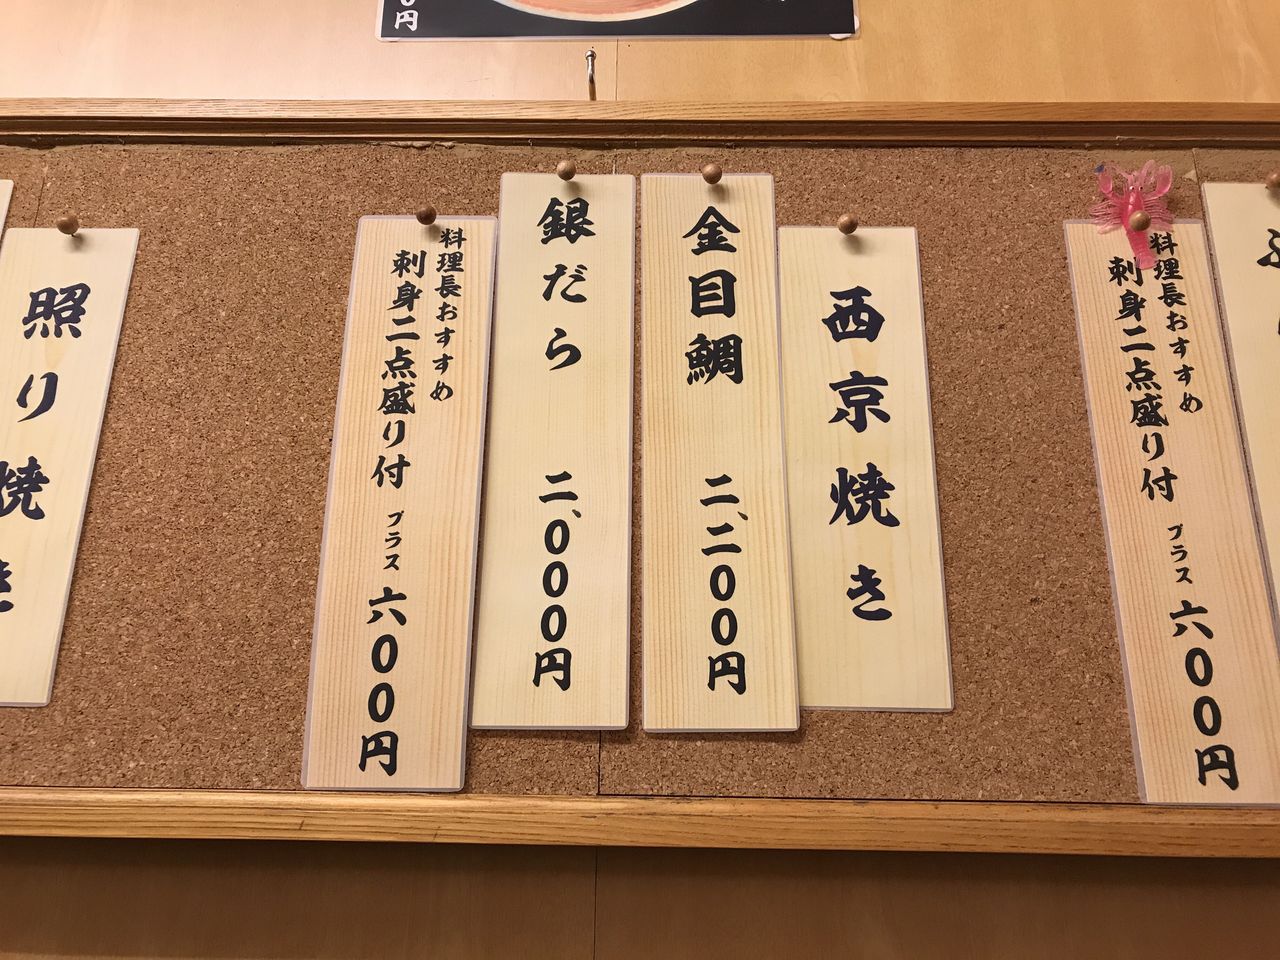 円
料理長おすすめ
刺身二点盛り付 プラス 六00円
西京焼き
金目鯛 二、二00円
銀だら 二、000円
料理長おすすめ
刺身二点盛り付 プラス 六00円
照り焼き